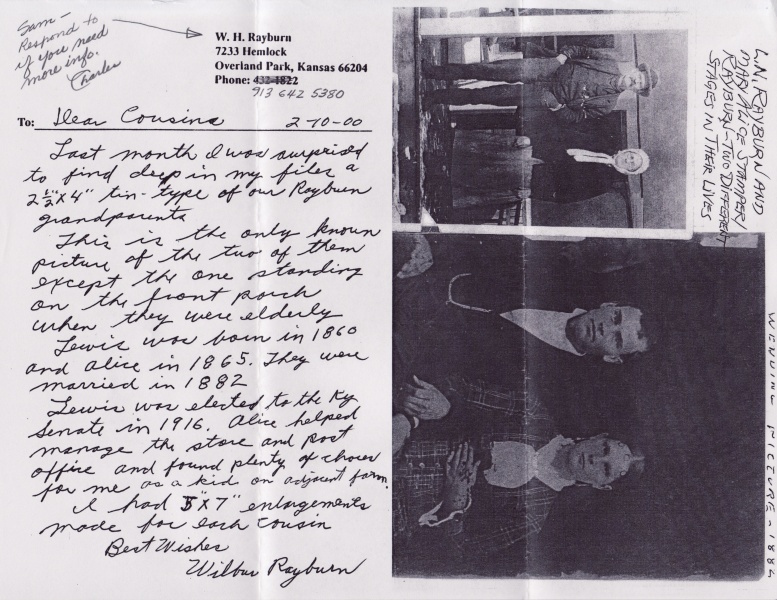 Sam -
Respond to
if you need
more info.
Charles
W. H. Rayburn
7233 Hemlock
Overland Park, Kansas 66204
Phone: 432-4822
913 642 5380
To: Dear Cousins 2-10-00
Last month I was surprised
to find deep in my files a
2½" x 4" tin-type of our Rayburn
grandparents
This is the only known
picture of the two of them
except the one standing
on the front porch
when they were elderly
Lewis was born in 1860
and Alice in 1865. They were
married in 1882
Lewis was elected to the Ky
Senate in 1916. Alice helped
manage the store and post
office and found plenty of chores
for me as a kid on adjacent farm.
I had 5"x7" enlargements
made for each cousin
Best Wishes
Wilbur Rayburn
L.N. RAYBURN AND
MARY ALICE STAMPER/
RAYBURN-TWO DIFFERENT
STAGES IN THEIR LIVES
WEDDING PICTURE - 1882